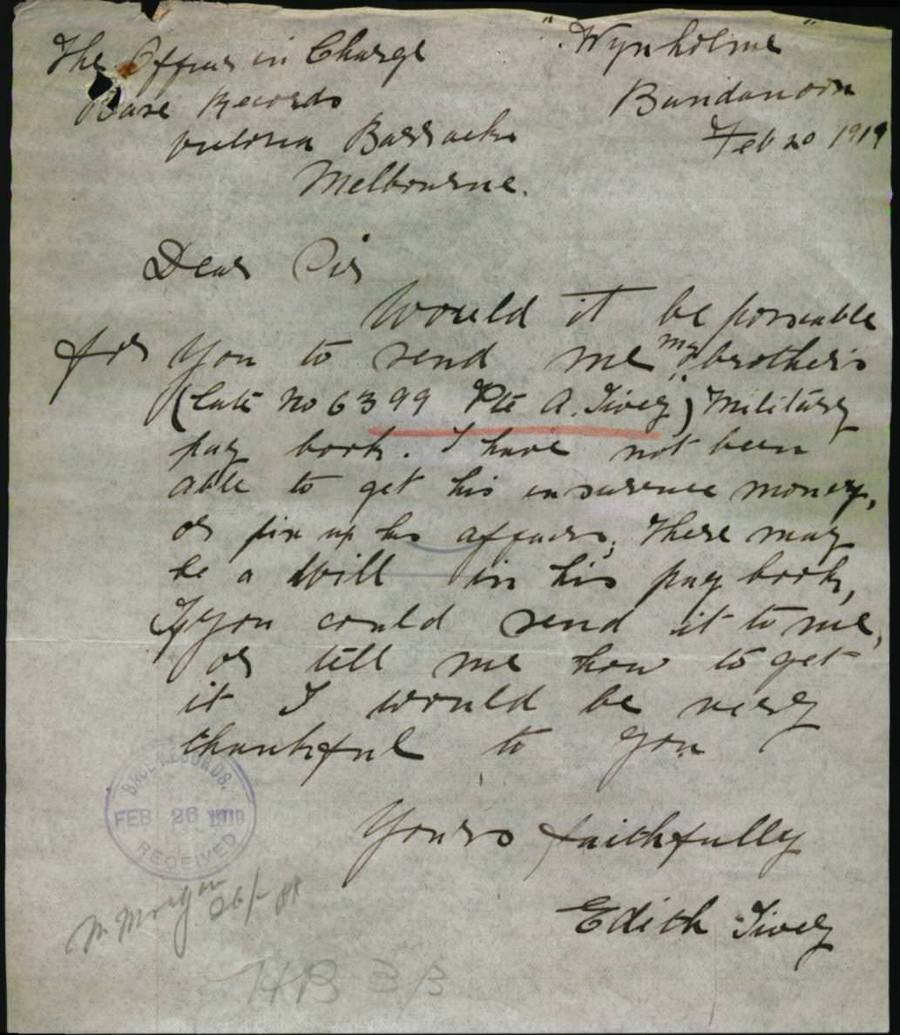 The Officer in Charge
Base Records
Victoria Barracks
Melbourne.
"Wynholme"
Bundanoon
Feb 20 1919
Dear Sir
Would it be possiable
for you to send me my brother's
(late No 6399 Pte A. Tivey) Military
pay book. I have not been
able to get his insurence money,
or fix up his affairs, there may
be a Will in his pay book,
If you could send it to me,
or tell me how to get
it I would be very
thankful to you
Yours faithfully
Edith Tivey
BASE RECORDS.
FEB 26 1919
RECEIVED
Morgan
26/2
HB 3/3